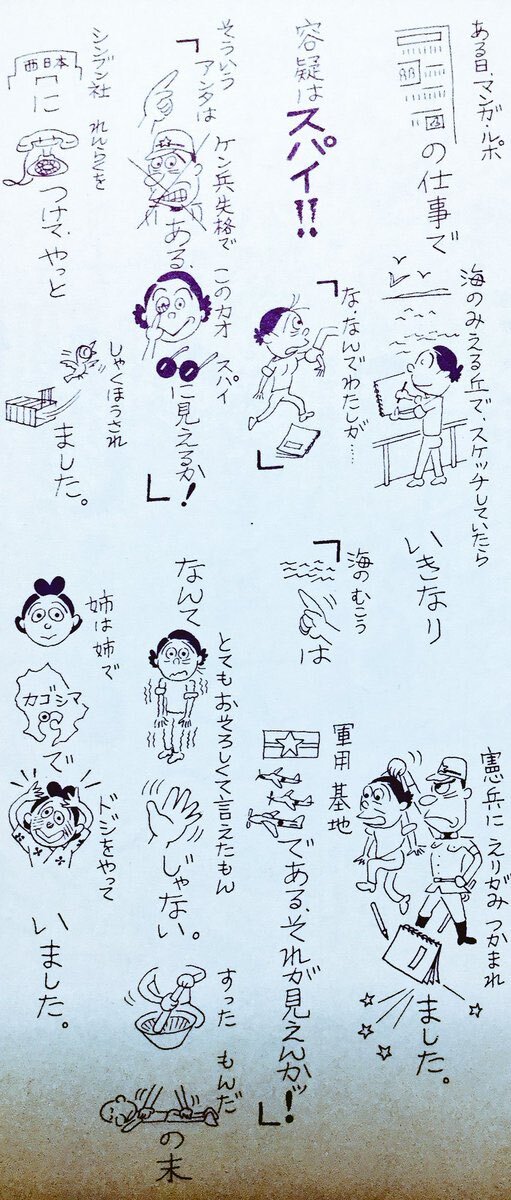 ある日、マンガ・ルポ
の仕事で
海のみえる丘で、スケッチしていたら
いきなり
憲兵に えりがみ つかまれ
ました。
容疑は スパイ!!
「な・なんでわたしが……」
「海のむこう
は
軍用 基地
である、それが見えんかッ」!
そういう
「アンタは
ケン兵失格で
ある、
このカオ スパイ
に見えるか!」
なんて
とてもおそろしくて言えたもん
じゃない。
すった もんだ
の末
シンブン社
西日本
に
れんらくを
つけて、やっと
しゃくほうされ
ました。
姉は姉で
カゴシマ
で
ドジをやって
いました。